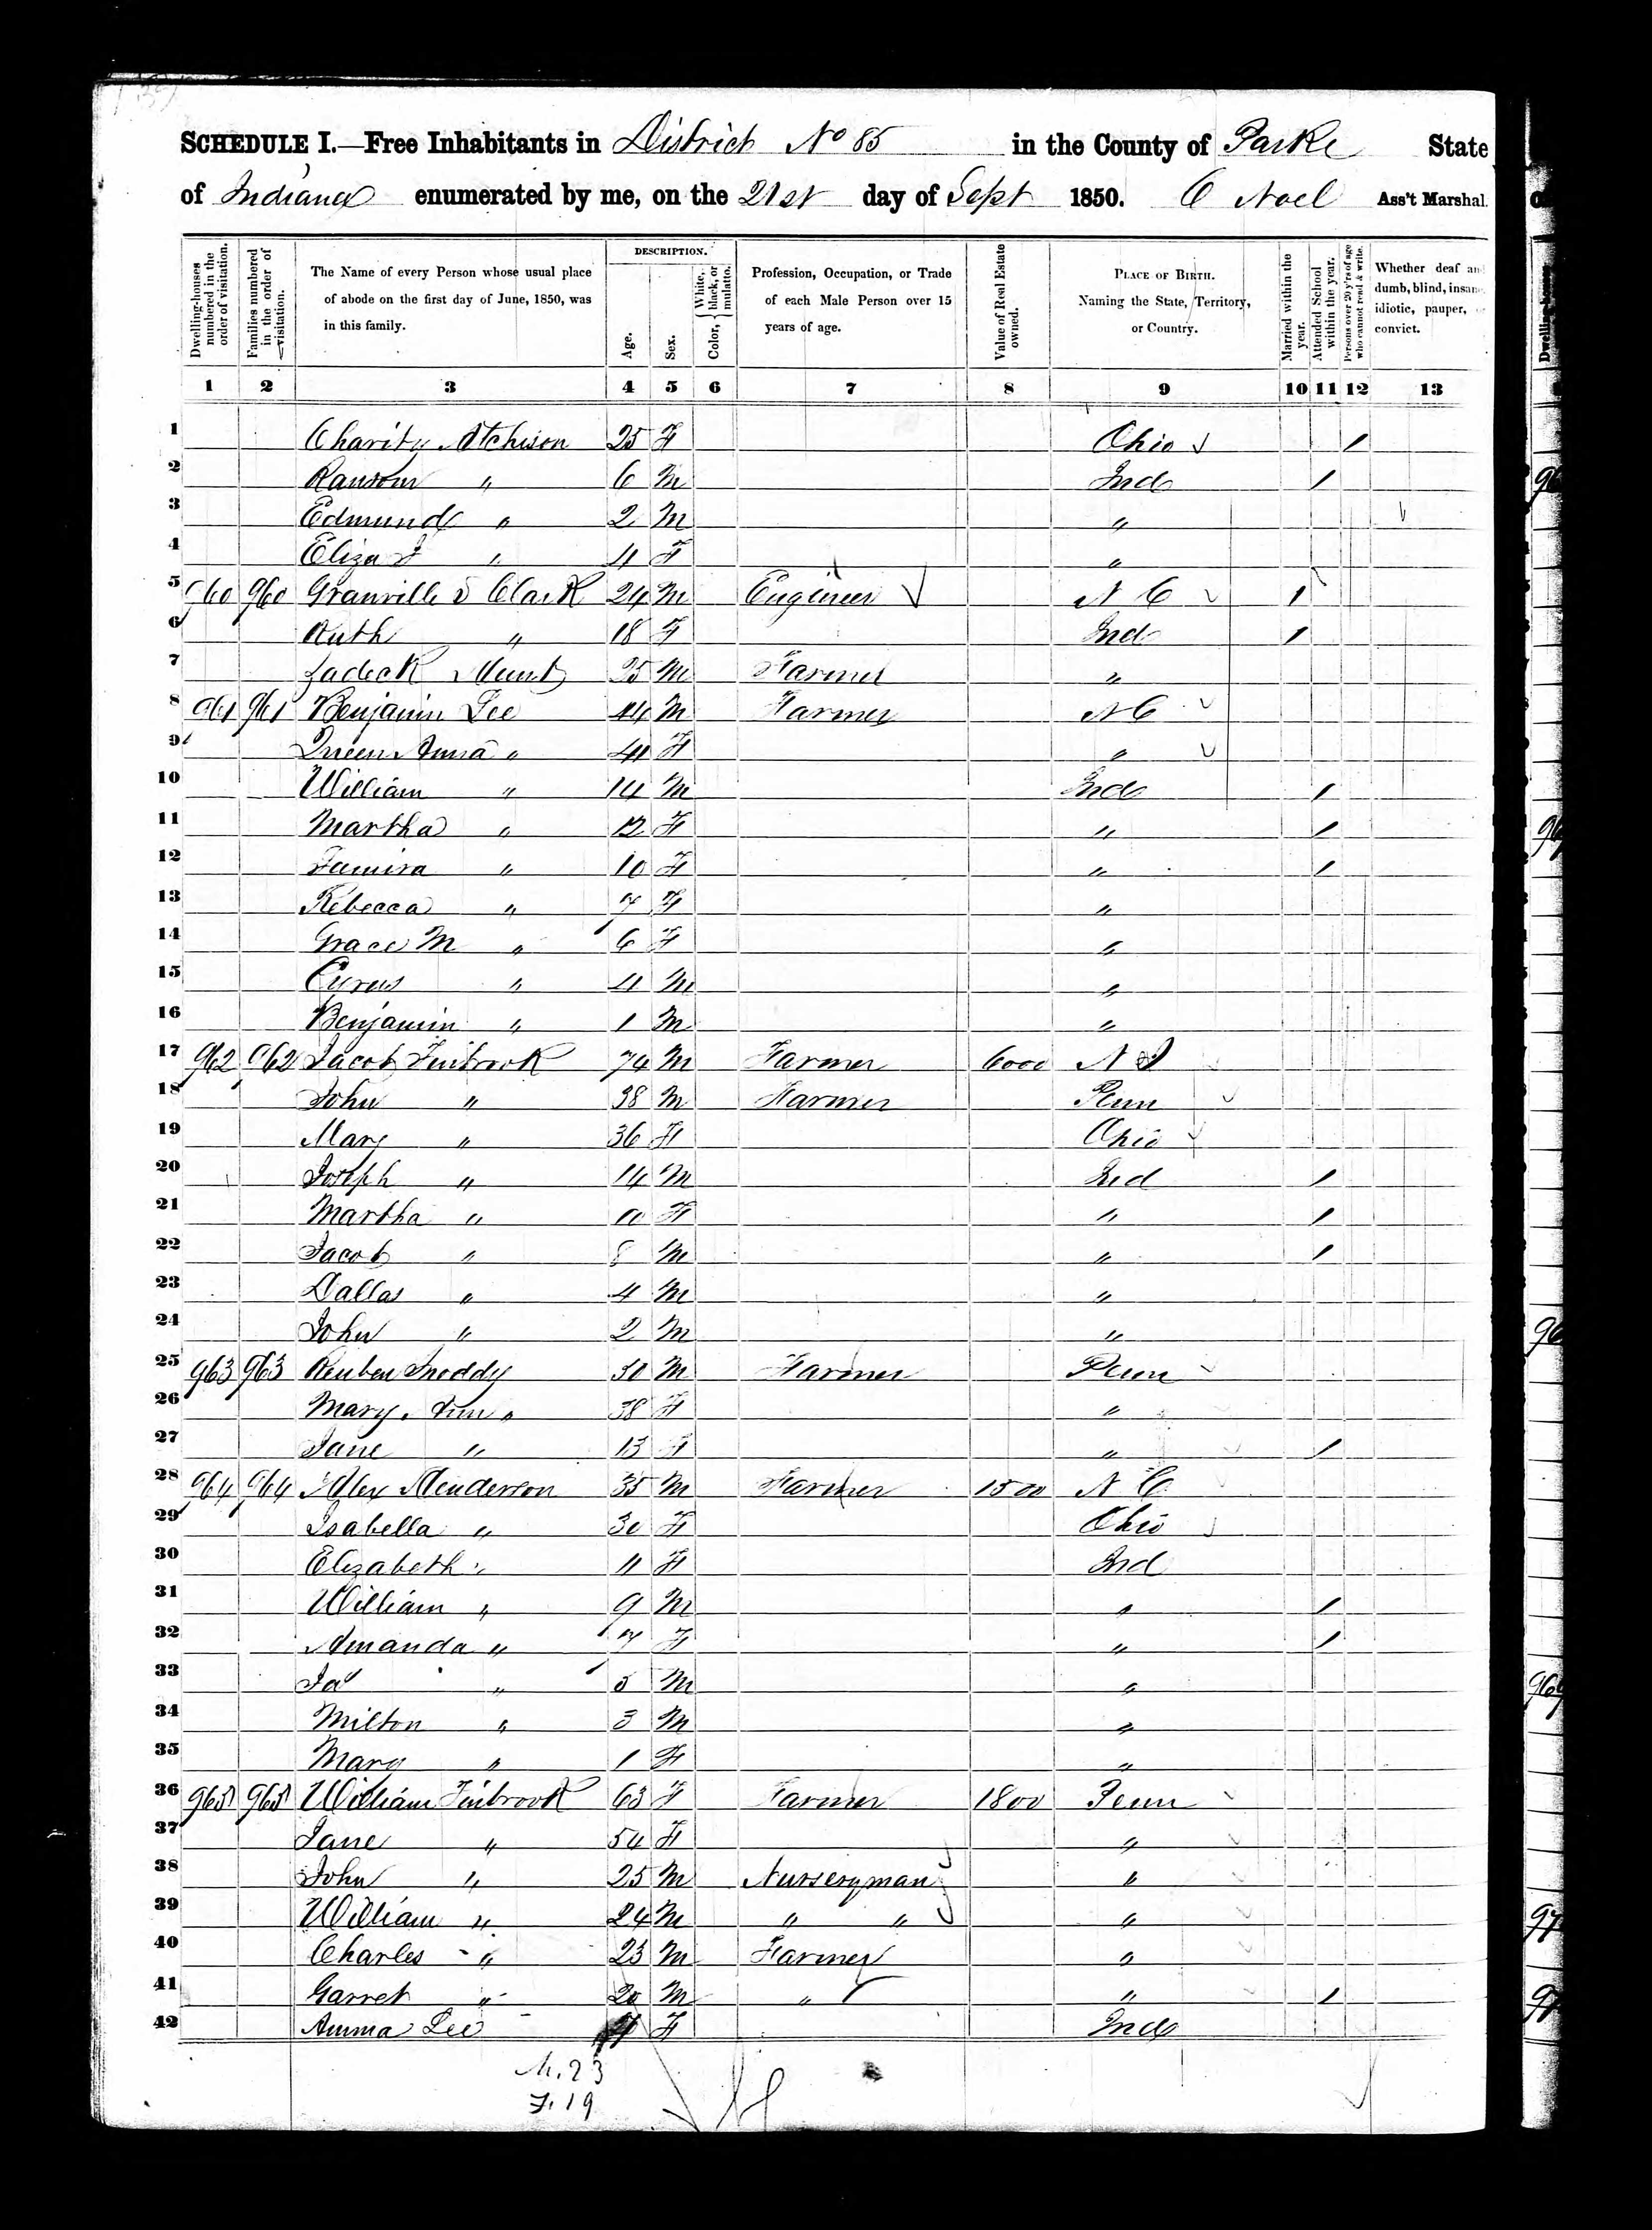 SCHEDULE I.—Free Inhabitants in District No 85 in the County of Parke State
of Indiana enumerated by me, on the 21st day of Sept 1850. C Noel Ass't Marshal.
Dwelling-houses numbered in the order of visitation.
Families numbered in the order of visitation.
The Name of every Person whose usual place of abode on the first day of June, 1850, was in this family.
DESCRIPTION.
Age.
Sex.
Color, { White, black, or mulatto.
Profession, Occupation, or Trade of each Male Person over 15 years of age.
Value of Real Estate owned.
PLACE OF BIRTH. Naming the State, Territory, or Country.
Married within the year.
Attended School within the year.
Persons over 20 y'rs of age who cannot read & write.
Whether deaf and dumb, blind, insane, idiotic, pauper, or convict.
1 2 3 4 5 6 7 8 9 10 11 12 13
1 Charity Atchison 25 F Ohio 1
2 Ransom " 6 M Ind 1
3 Edmund " 2 M "
4 Eliza J " 4 F "
5 960 960 Granville D Clark 24 M Engineer N C 1
6 Ruth " 18 F Ind 1
7 Zadeck 25 M Farmer "
8 961 961 Benjamin Lee 44 M Farmer N C
9 Queen Anna " 41 F "
10 William " 14 M Ind 1
11 Martha " 12 F " 1
12 " 10 F " 1
13 Rebecca " 7 F "
14 Grace M " 6 F "
15 Cyrus " 4 M "
16 Benjamin " 1 M "
17 962 962 Jacob Tenbrook 74 M Farmer 6000 N J
18 John " 38 M Farmer Penn
19 Mary " 36 F Ohio
20 Joseph " 14 M Ind 1
21 Martha " 10 F " 1
22 Jacob " 8 M " 1
23 Dallas " 4 M "
24 John " 2 M "
25 963 963 Reuben Snoddy M Farmer Penn
26 Mary Ann " 38 F "
27 Jane " 13 F " 1
28 964 964 Alex Henderson 35 M Farmer 1500 N C
29 Isabella " 30 F Ohio
30 Elizabeth " 11 F Ind
31 William " 9 M " 1
32 Amanda " 7 F " 1
33 Jas " 5 M "
34 Milton " 3 M "
35 Mary " 1 F "
36 965 965 William Tenbrook 63 F Farmer 1800 Penn
37 Jane " 54 F "
38 John " 25 M Nurseryman "
39 William " 24 M " " "
40 Charles " 23 M Farmer "
41 Garret " 20 M " " 1
42 Amma Lee F Ind
M. 23
F. 19